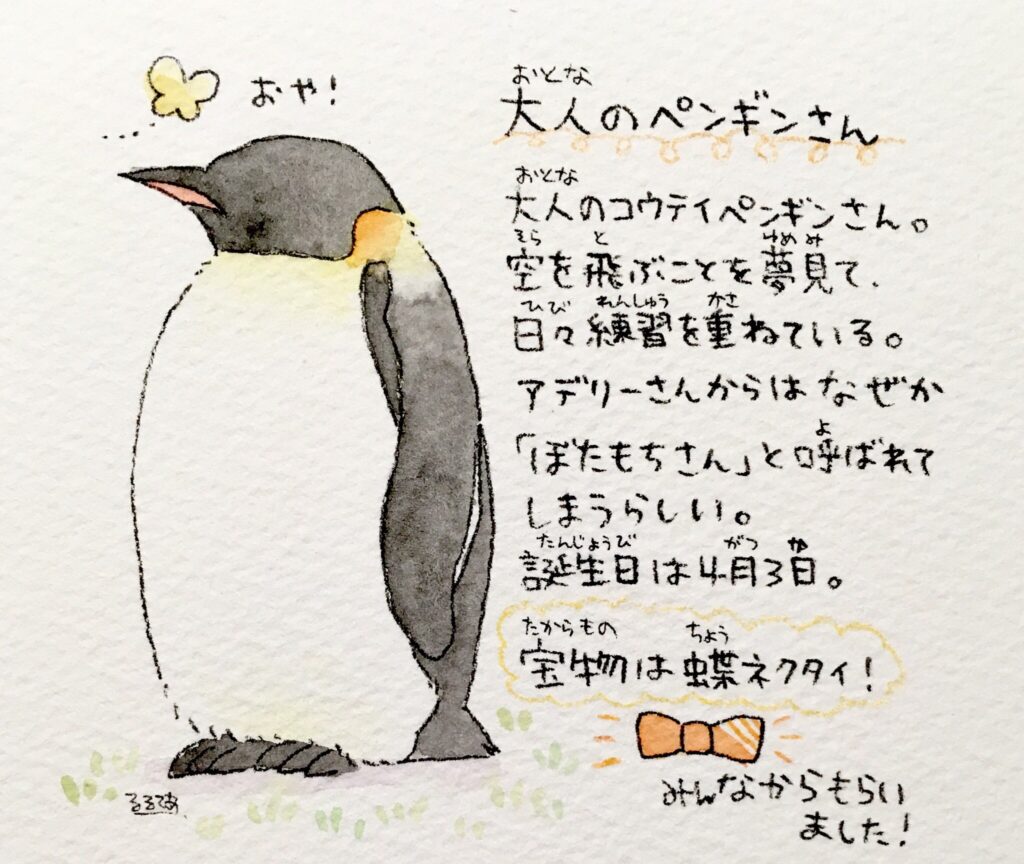 おや！
大人のペンギンさん
おとな
大人のコウテイペンギンさん。
おとな
空を飛ぶことを夢見て、
そら と ゆめ み
日々練習を重ねている。
ひび れんしゅう かさ
アデリーさんからはなぜか
「ぼたもちさん」と呼ばれて
よ
しまうらしい。
誕生日は4月3日。
たんじょうび がつ か
宝物は蝶ネクタイ！
たからもの ちょう
みんなからもらい
ました！